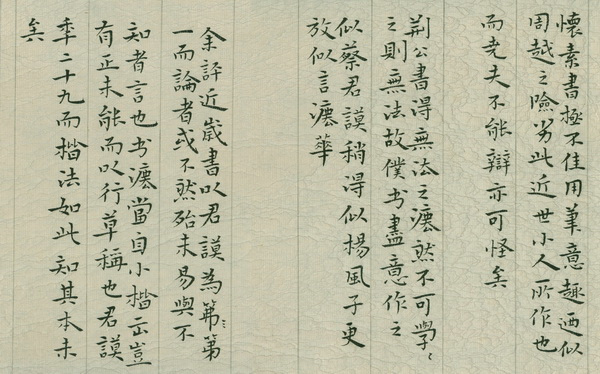 懷素書極不佳用筆意趣迺似
周越之險劣此近世小人所作也
而堯夫不能辯亦可怪矣
荆公書得無法之灋然不可學〻
之則無法故僕书盡意作之
似蔡君謨稍得似楊風子更
放似言灋華
余評近歲書以君謨為苐第
一而論者或不然殆未易與不
知者言也书灋當自小楷出豈
有正未能而以行草稱也君謨
秊二十九而楷法如此知其本末
矣